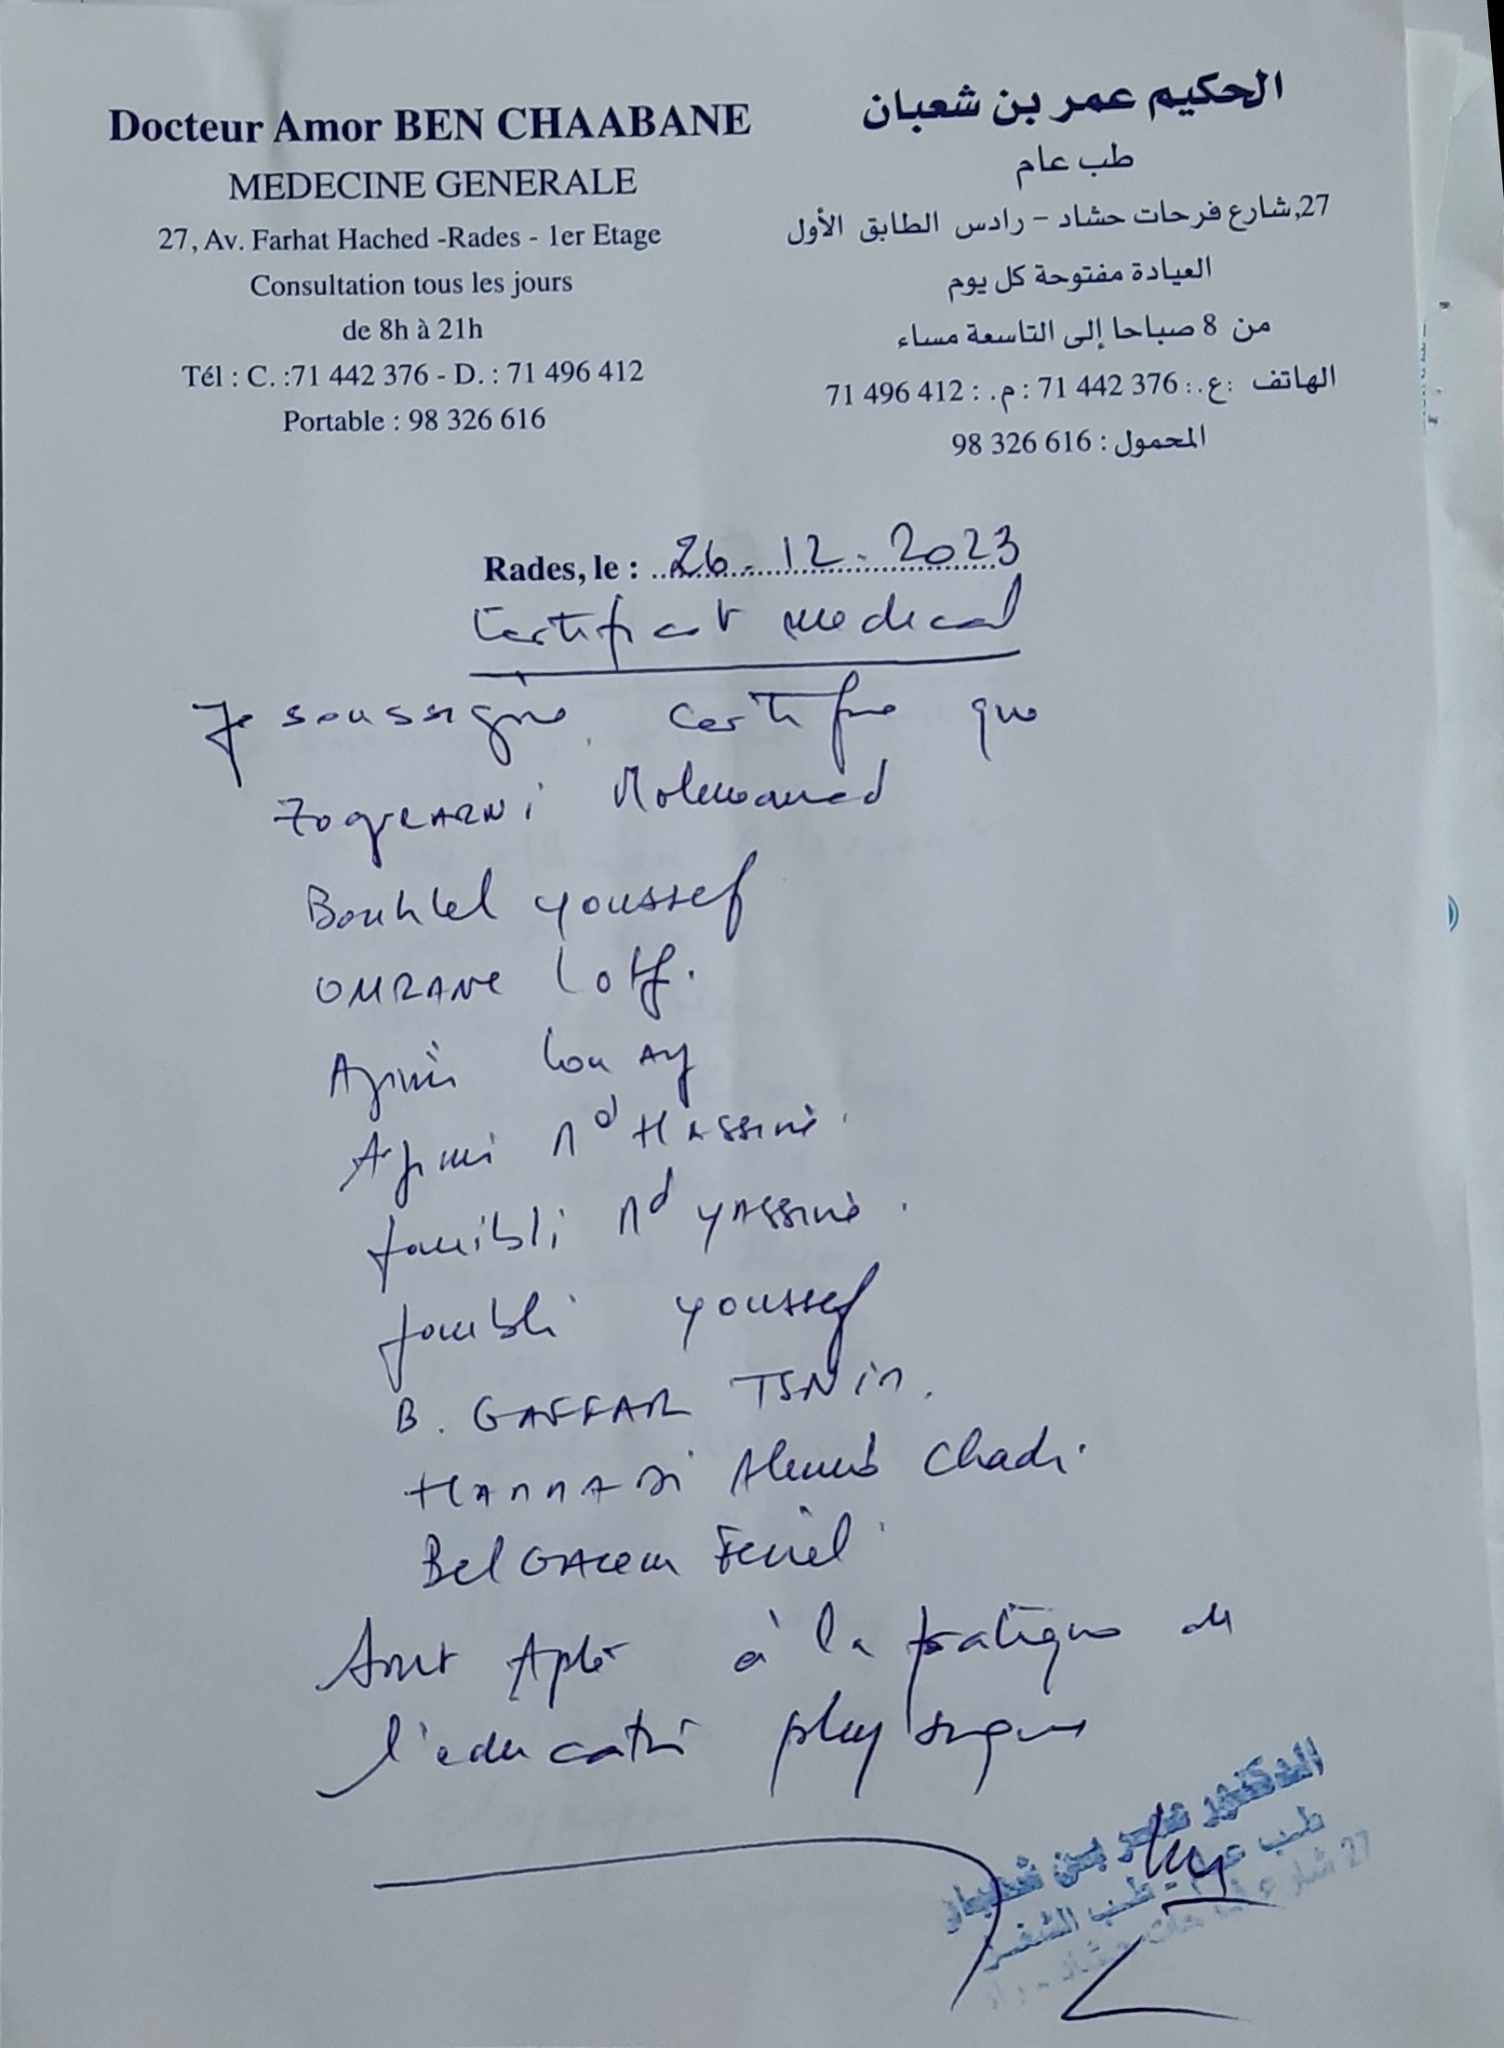 Docteur Amor BEN CHAABANE
MEDECINE GENERALE
27, Av. Farhat Hached -Rades - 1er Etage
Consultation tous les jours
de 8h à 21h
Tél : C. :71 442 376 - D. : 71 496 412
Portable : 98 326 616
الحكيم عمر بن شعبان
طب عام
27,شارع فرحات حشاد - رادس الطابق الأول
العيادة مفتوحة كل يوم
من 8 صباحا إلى التاسعة مساء
الهاتف :ع.: 376 442 71 : م. : 412 496 71
المحمول : 616 326 98
Rades, le : 26.12.2023
Certificat medical
Je soussigne certifie que
Mohamed
Bouhlel youssef
OMRANE Lotf.
Ajmi Louay
Ajmi Md HAssine.
Md yAssine.
youssef
B. GAFFAR
Ahmed Chadi.
BelGAcem Feriel
sont Apte à la pratique de
l'education physique
بن شعبان
طب
27 شارع